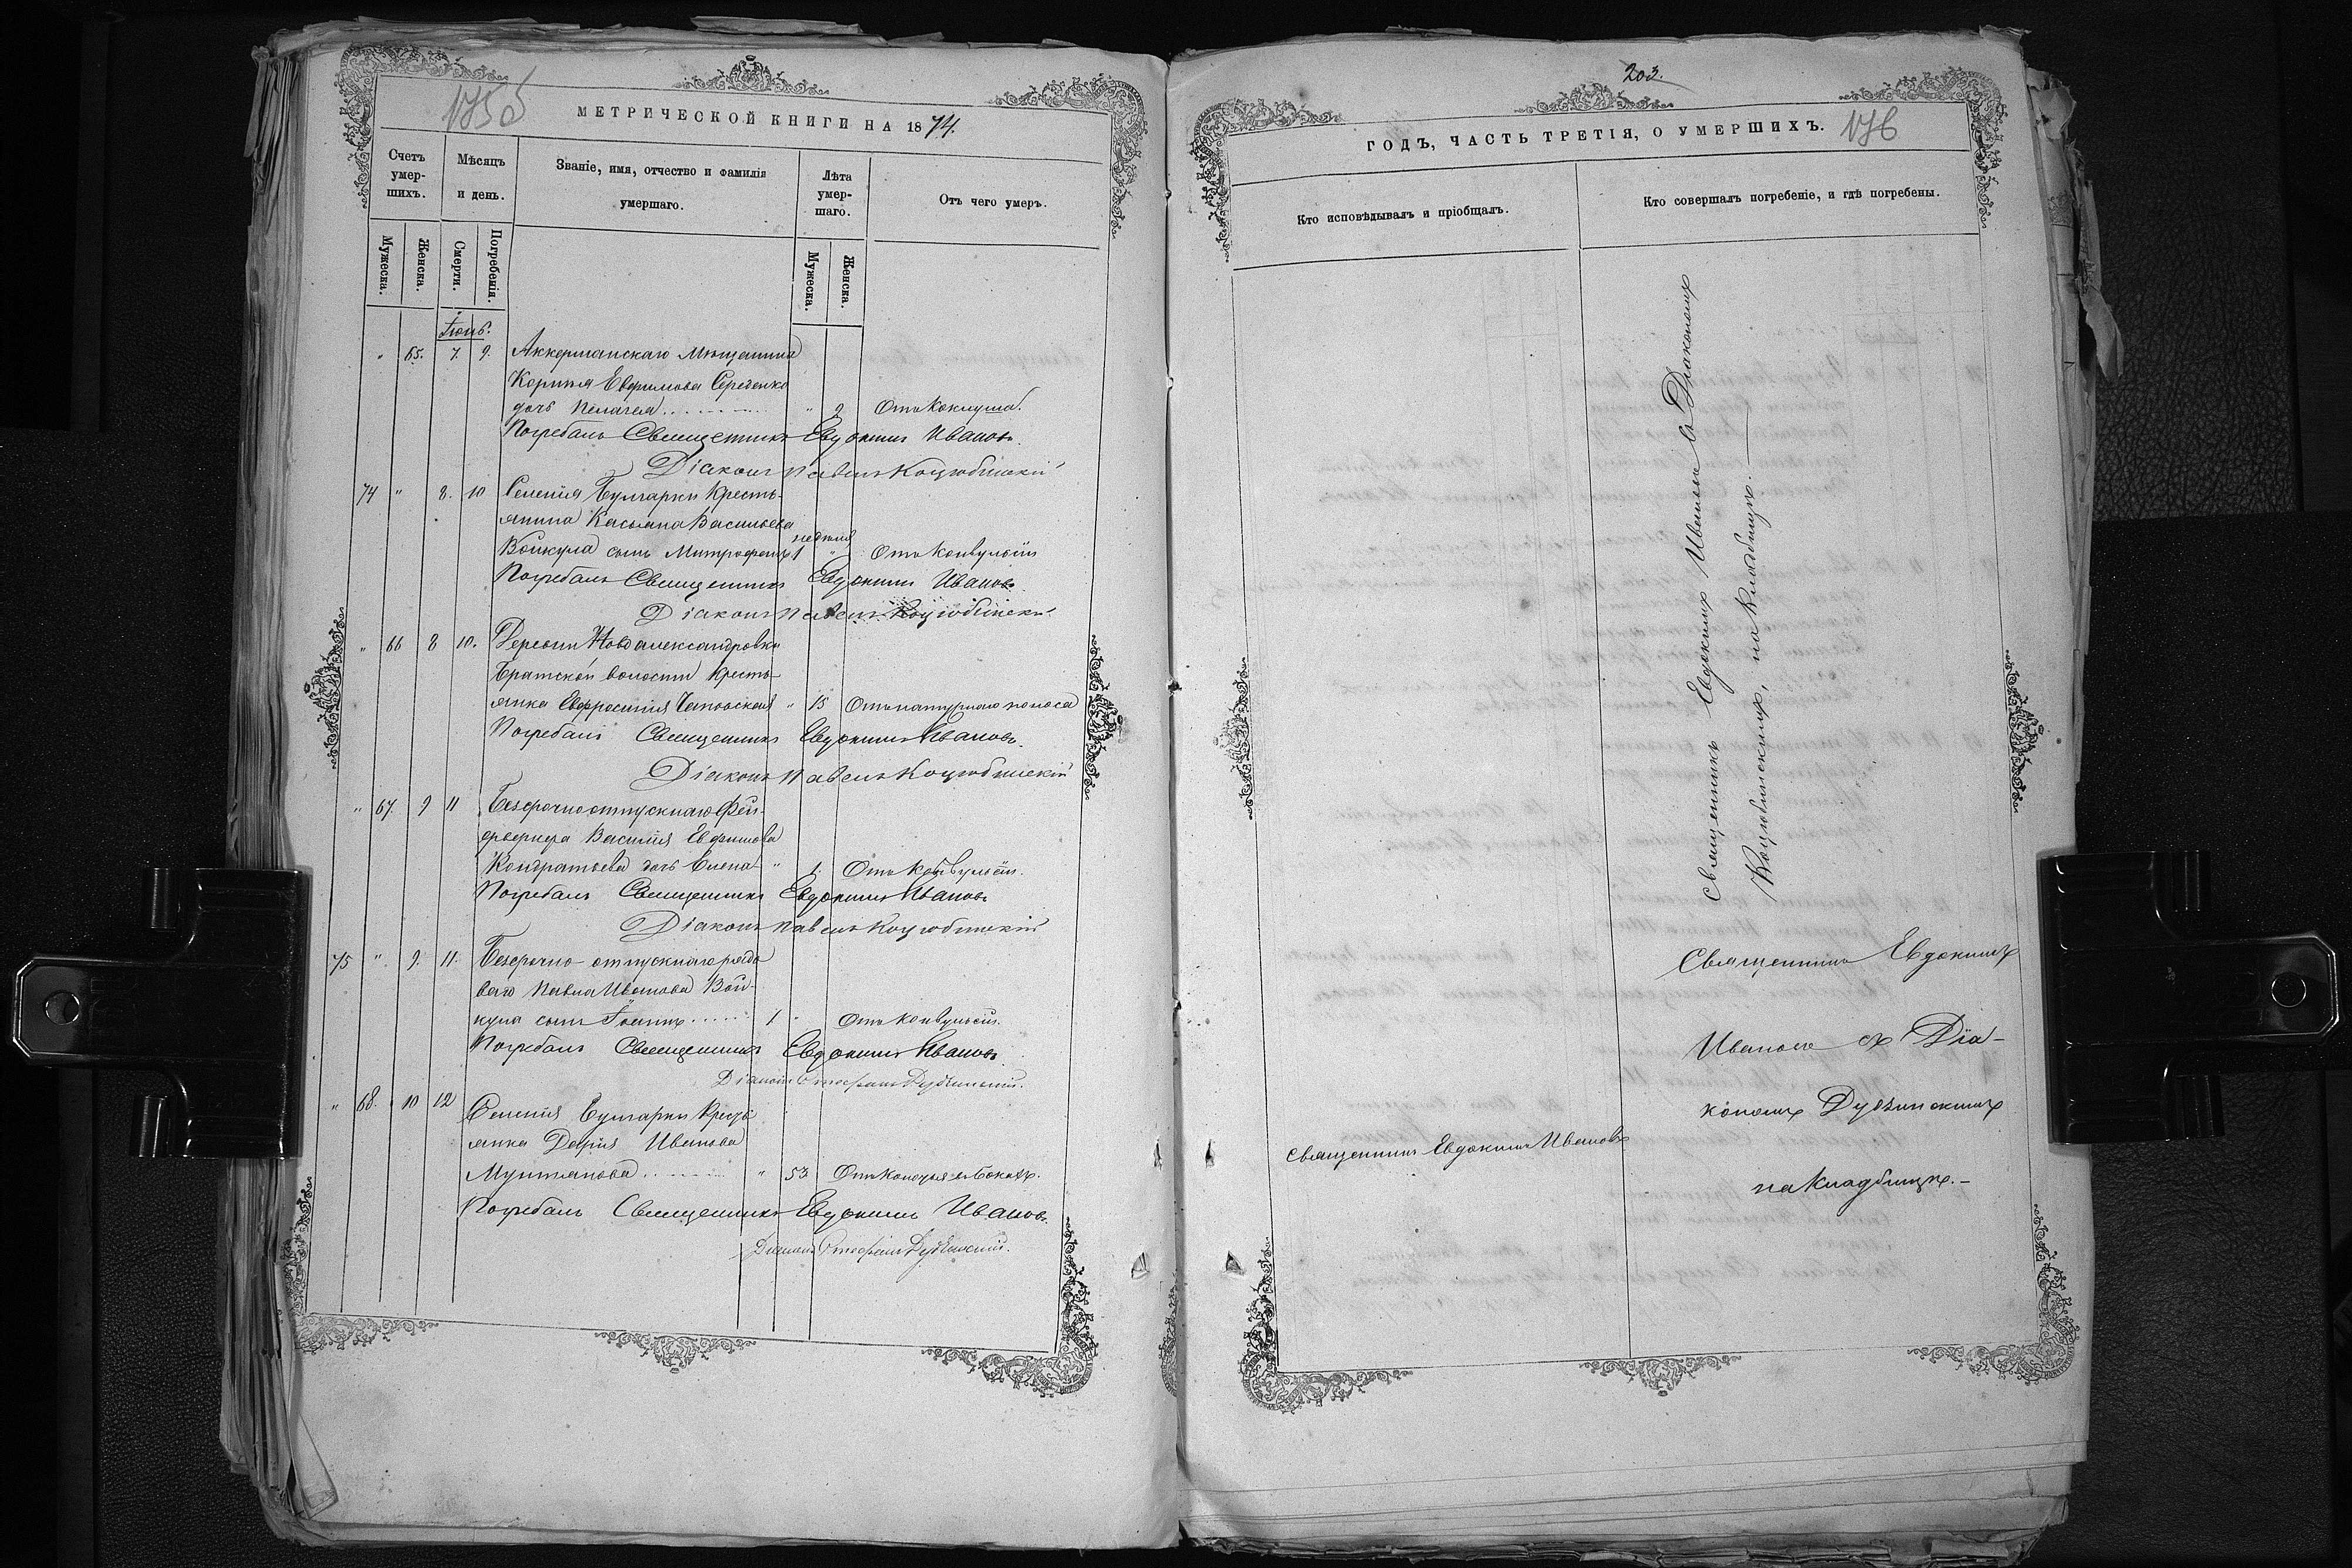 МЕТРИЧЕСКОЙ КНИГИ НА 1874.
Счетъ умершихъ.
Мѣсяцъ и день.
Званіе, имя, отчество и фамилія умершаго.
Лѣта умершаго.
Отъ чего умеръ.
Мужеска.
Женска.
Смерти.
Погребенія.
Мужеска.
Женска.
Іюнь.
" 65. 7. 9. Аккерманскаго Мѣщанина
Евфимова
дочь Пелагея " 2 Отъ Коклуша.
Погребалъ Священникъ Евдокимъ Ивановъ.
Діаконъ Павелъ Коцюбинскій
74 " 8. 10 Селенія Булгарки Кресть-
янина Касьяна Васильева
Войкула сынъ Митрофанъ 1 недѣля " Отъ Конвульсій
Погребалъ Священникъ Евдокимъ Ивановъ.
Діаконъ Павелъ Коцюбинскій
" 66 8 10. Деревни Новоалександровки
Братской волости Кресть-
янка Евфросинія " 15 Отъ натурнаго поноса
Погребалъ Священникъ Евдокимъ Ивановъ.
Діаконъ Павелъ Коцюбинскій
" 67. 9 11 Безсрочноотпускнаго Фей-
ерверкера Василія Евфимова
Кондратьева дочь Елена " 1. Отъ Конвульсій.
Погребалъ Священникъ Евдокимъ Ивановъ
Діаконъ Павелъ Коцюбинскій
75 " 9. 11. Безсрочно-отпускнаго рядо
ваго Павла Иванова Вой-
кула сынъ Іоаннъ 1 " Отъ Конвульсій.
Погребалъ Священникъ Евдокимъ Ивановъ.
Діаконъ Стефанъ Дубчинскій.
" 68. 10 12 Селенія Булгарки Кресть
янка Дарія Иванова
Мунтянова " 53 Отъ Колотья въ Бокахъ.
Погребалъ Священникъ Евдокимъ Ивановъ.
Діаконъ Стефанъ Дубчинскій.
203.
ГОДЪ, ЧАСТЬ ТРЕТІЯ, О УМЕРШИХЪ. 176
Кто исповѣдывалъ и пріобщалъ.
Кто совершалъ погребеніе, и гдѣ погребены.
Священникъ Евдокимъ Ивановъ съ Діакономъ
Коцюбинскимъ, на кладбищѣ.
Священникъ Евдокимъ
Ивановъ съ Діа-
кономъ Дубчинскимъ
Священникъ Евдокимъ Ивановъ
на Кладбищѣ.